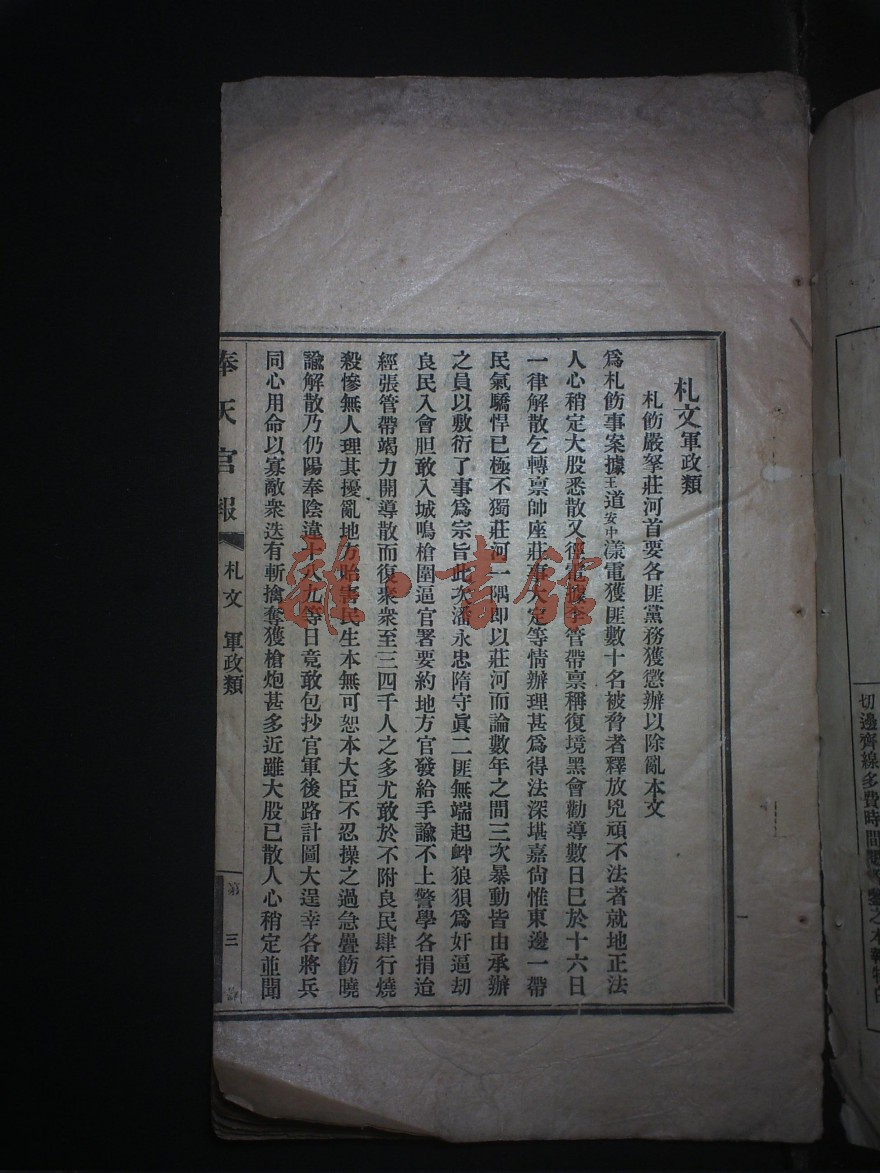 札文軍政類
札飭嚴拏莊河首要各匪黨務獲懲辦以除亂本文
為札飭事案據王道安中漾電獲匪數十名被脅者釋放兇頑不法者就地正法
人心稍定大股悉散又得電據李管帶禀稱復境黑會勸導數日已於十六日
一律解散乞轉禀帥座莊事大定等情辦理甚為得法深堪嘉尙惟東邊一帶
民氣驕悍已極不獨莊河一隅即以莊河而論數年之間三次暴動皆由承辦
之員以敷衍了事爲宗旨此次潘永忠隋守眞二匪無端起衅狼狽爲奸逼刼
良民入會胆敢入城鳴槍圍逼官署要約地方官發給手諭不上警學各捐迨
經張管帶竭力開導散而復衆衆至三四千人之多尤敢於不附良民肆行燒
殺慘無人理其擾亂地方貽害民生本無可恕本大臣不忍操之過急疊飭曉
諭解散乃仍陽奉陰違十八九等日竟敢包抄官軍後路計圖大逞幸各將兵
同心用命以寡敵衆迭有斬擒奪獲槍炮甚多近雖大股已散人心稍定並聞
奉天官報
札文 軍政類
第三
切邊齊線多費時間
雜·書館